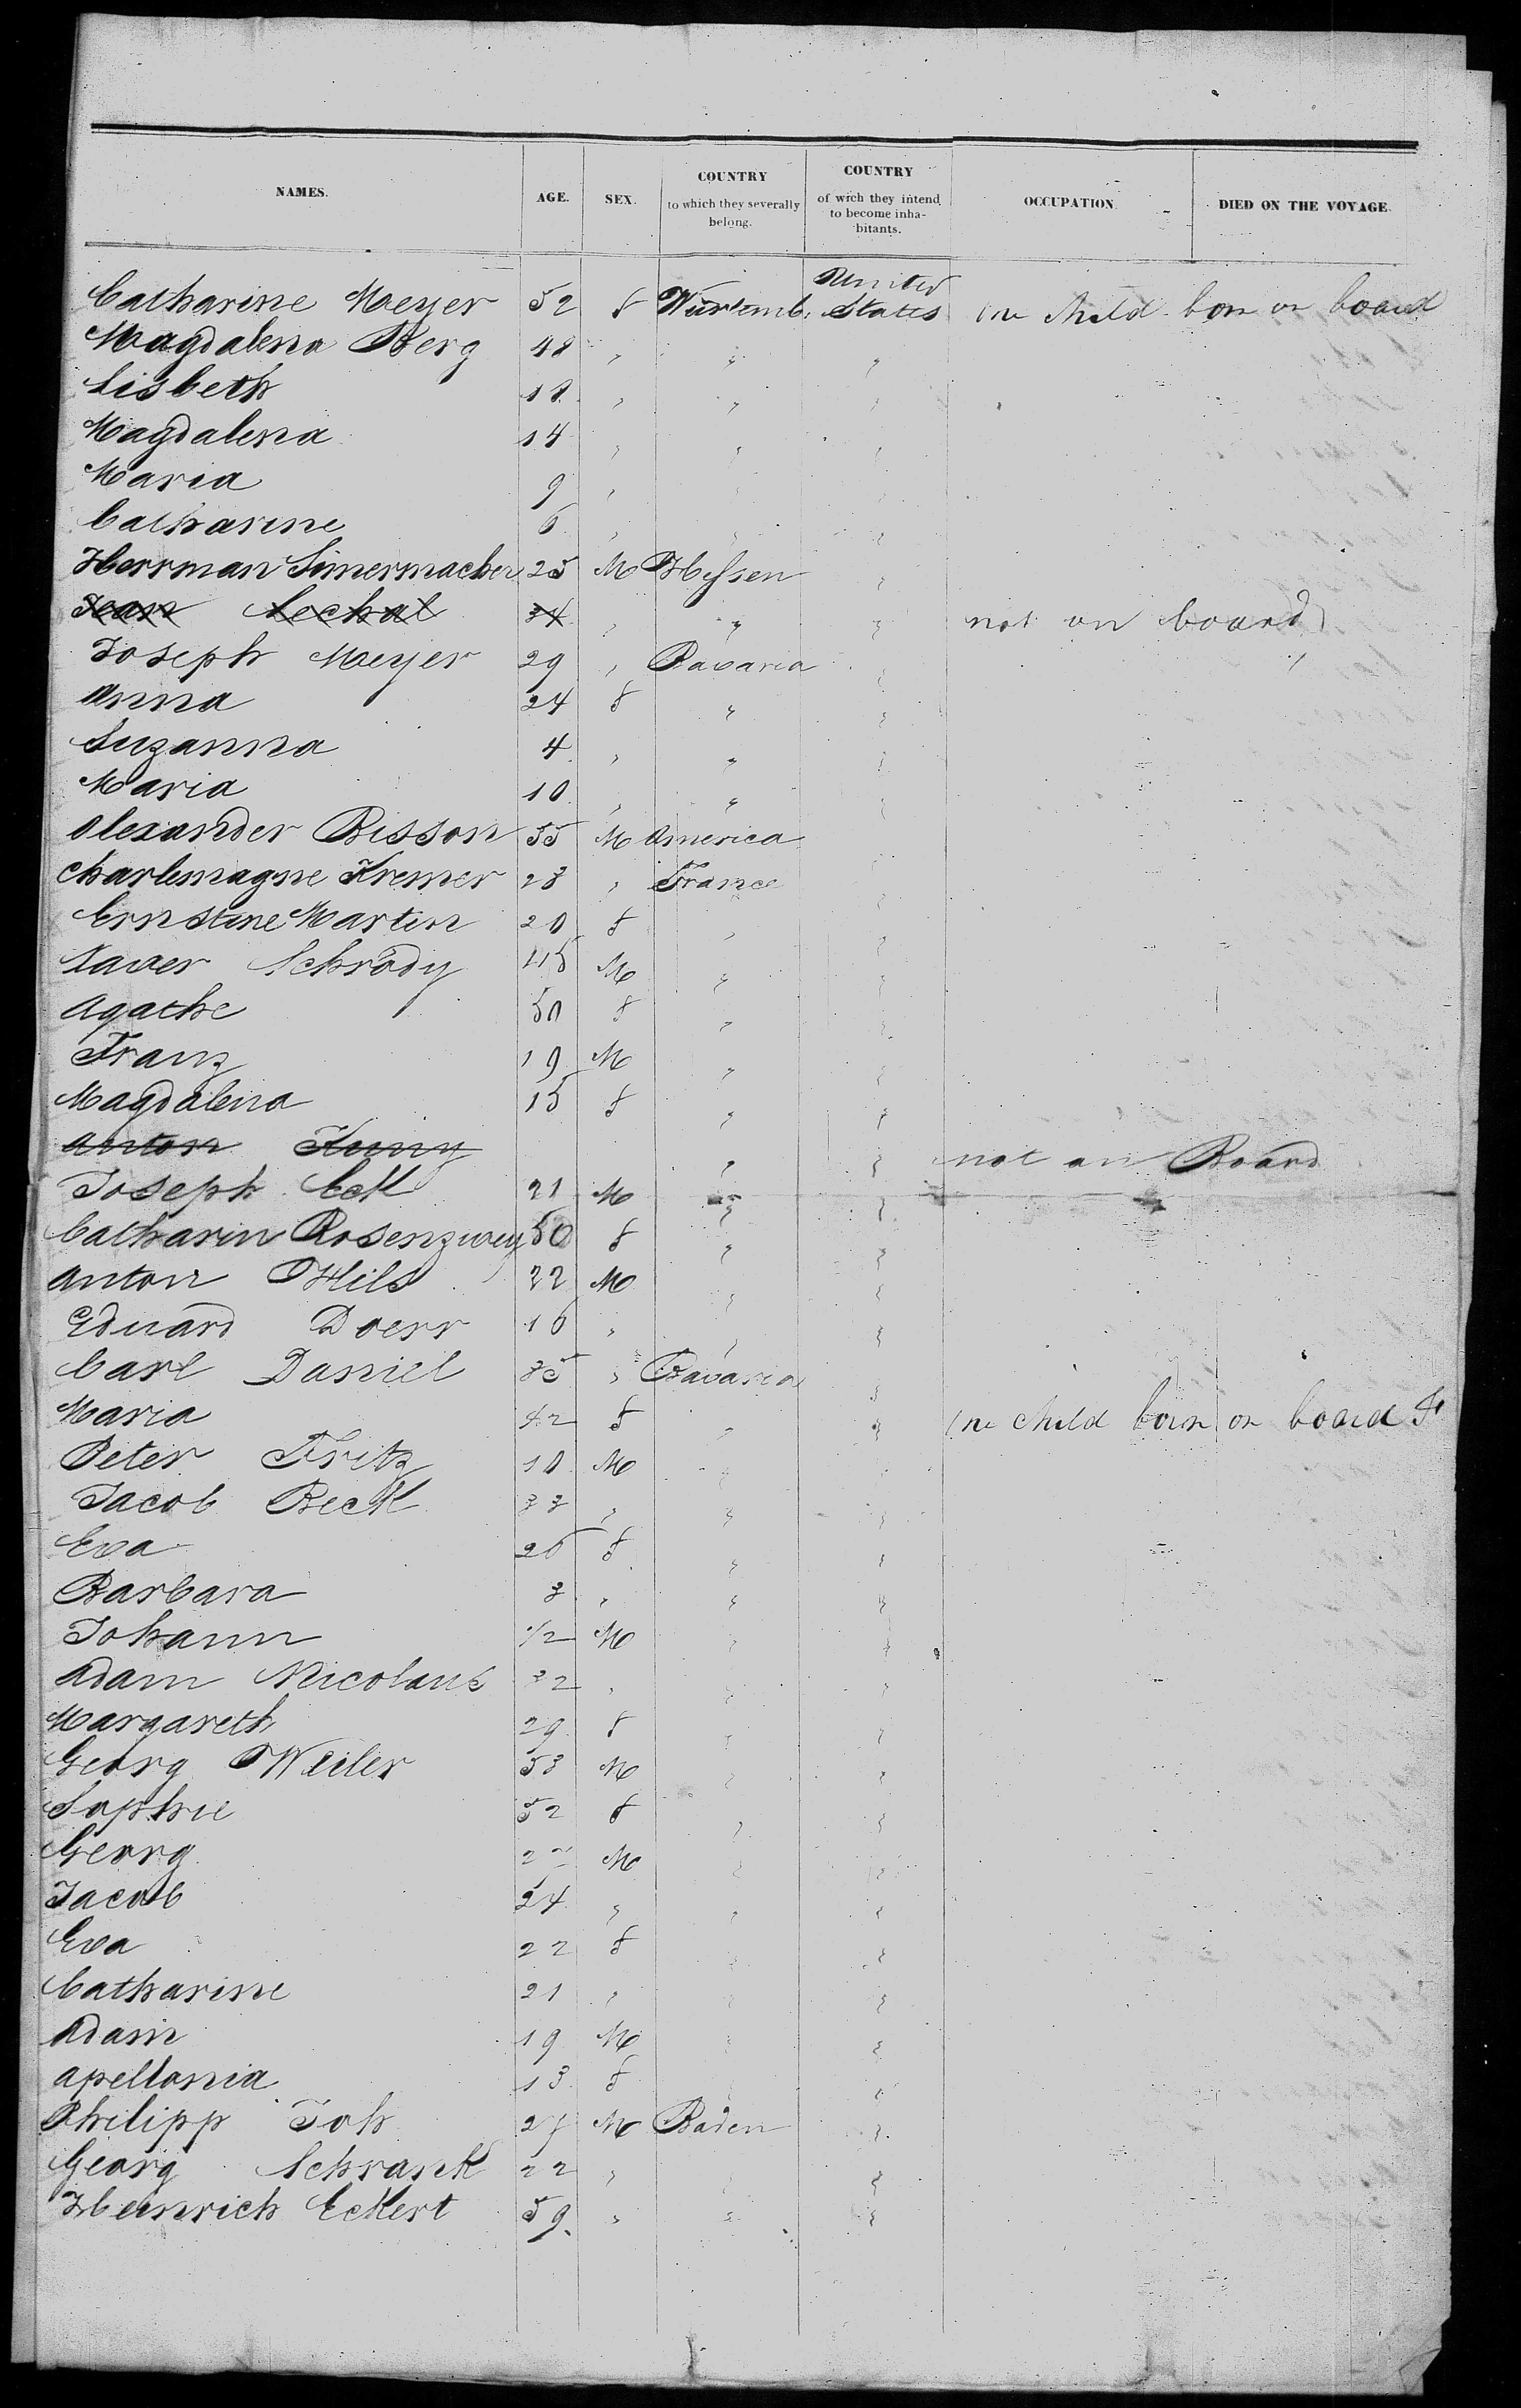 NAMES. AGE. SEX. COUNTRY to which they severally belong. COUNTRY of wich they intend to become inhabitants. OCCUPATION. DIED ON THE VOYAGE.
Catharine Meyer 52 f Würtemb. United States one child born on board
Magdalena Berg 48 " " "
Lisbeth 18 " " "
Magdalena 14 " " "
Maria 9 "
Catharine 6 " " "
Herrman Simermacher 25 M Hessen "
Jean Lechal 34 " " " not on board
Joseph Meyer 29 " Bavaria "
Anna 24 f " "
Suzanna 4 " " "
Maria 10 " " "
Alexander Bisson 55 M America
Charlemagne Kremer 28 " France "
Ernstine Martin 20 f " "
Xaver Schrödy 45 M " "
Agathe 50 f " "
Franz 19 M " "
Magdalena 15 f " "
Anton " " not on Board
Joseph Eck 21 M " "
Catharin Rosenzweig 50 f " "
Anton Hils 22 M " "
Eduard Doerr 16 " " "
Carl Daniel 35 " Bavaria "
Maria 42 f " " one child born on board
Peter Fritz 10 M "
Jacob Beck 33 " " "
Eva 26 f " "
Barbara 3 " " "
Johann 1/2 M " "
Adam Nicolaus 32 " " "
Margareth 29 f " "
Georg Weiler 53 M " "
Sophie 52 f " "
Georg M " "
Jacob 24 " " "
Eva 22 f " "
Catharine 21 " " "
Adam 19 M " "
Apellonia 13 f "
Philipp Joh 27 M Baden "
Georg Schrank 22 " " "
Heinrich Eckert 59 " " "